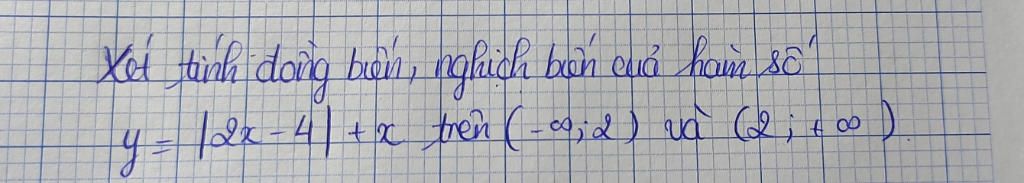 Xét tính đồng biến, nghịch biến của hàm số
y = |2x - 4| + x trên (-∞; 2) và (2; +∞).